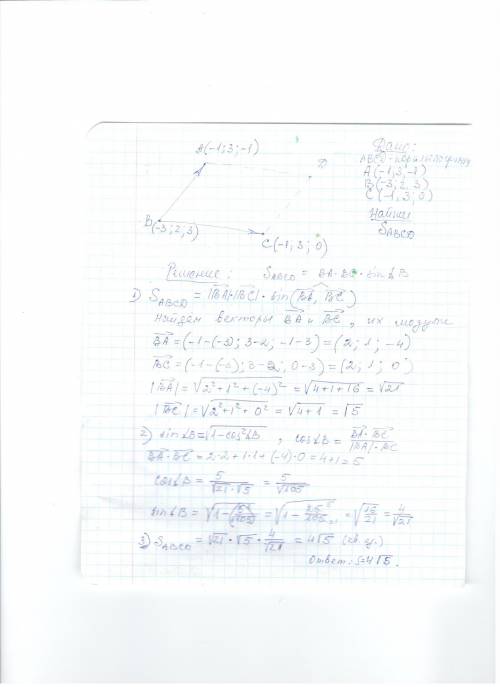 A(-1;3;-1)
D
B(-3;2;3)
C(-1;3;0)
Дано:
ABCD-параллелограмм
A(-1;3;-1)
B(-3;2;3)
C(-1;3;0)
Найти
S_ABCD
Решение: S_ABCD = BA·BC·sin∠B
1) S_ABCD = |BA|·|BC|·sin(BA, BC)
Найдем векторы BA и BC, их модули
BA=(-1-(-3); 3-2; -1-3)=(2; 1; -4)
BC=(-1-(-3); 3-2; 0-3)=(2; 1; 0)
|BA|=√(2²+1²+(-4)²)=√(4+1+16)=√21
|BC|=√(2²+1²+0²)=√(4+1)=√5
2) sin∠B=√(1-cos²∠B), cos∠B= BA·BC/|BA|·BC
BA·BC=2·2+1·1+(-4)·0=4+1=5
cos∠B=5/(√21·√5)=5/√105
sin∠B=√(1-(5/√105)²)=√(1-25/105)=√(16/21)=4/√21
3) S_ABCD=√21·√5·4/√21=4√5 (кв.ед.)
Ответ: S=4√5.